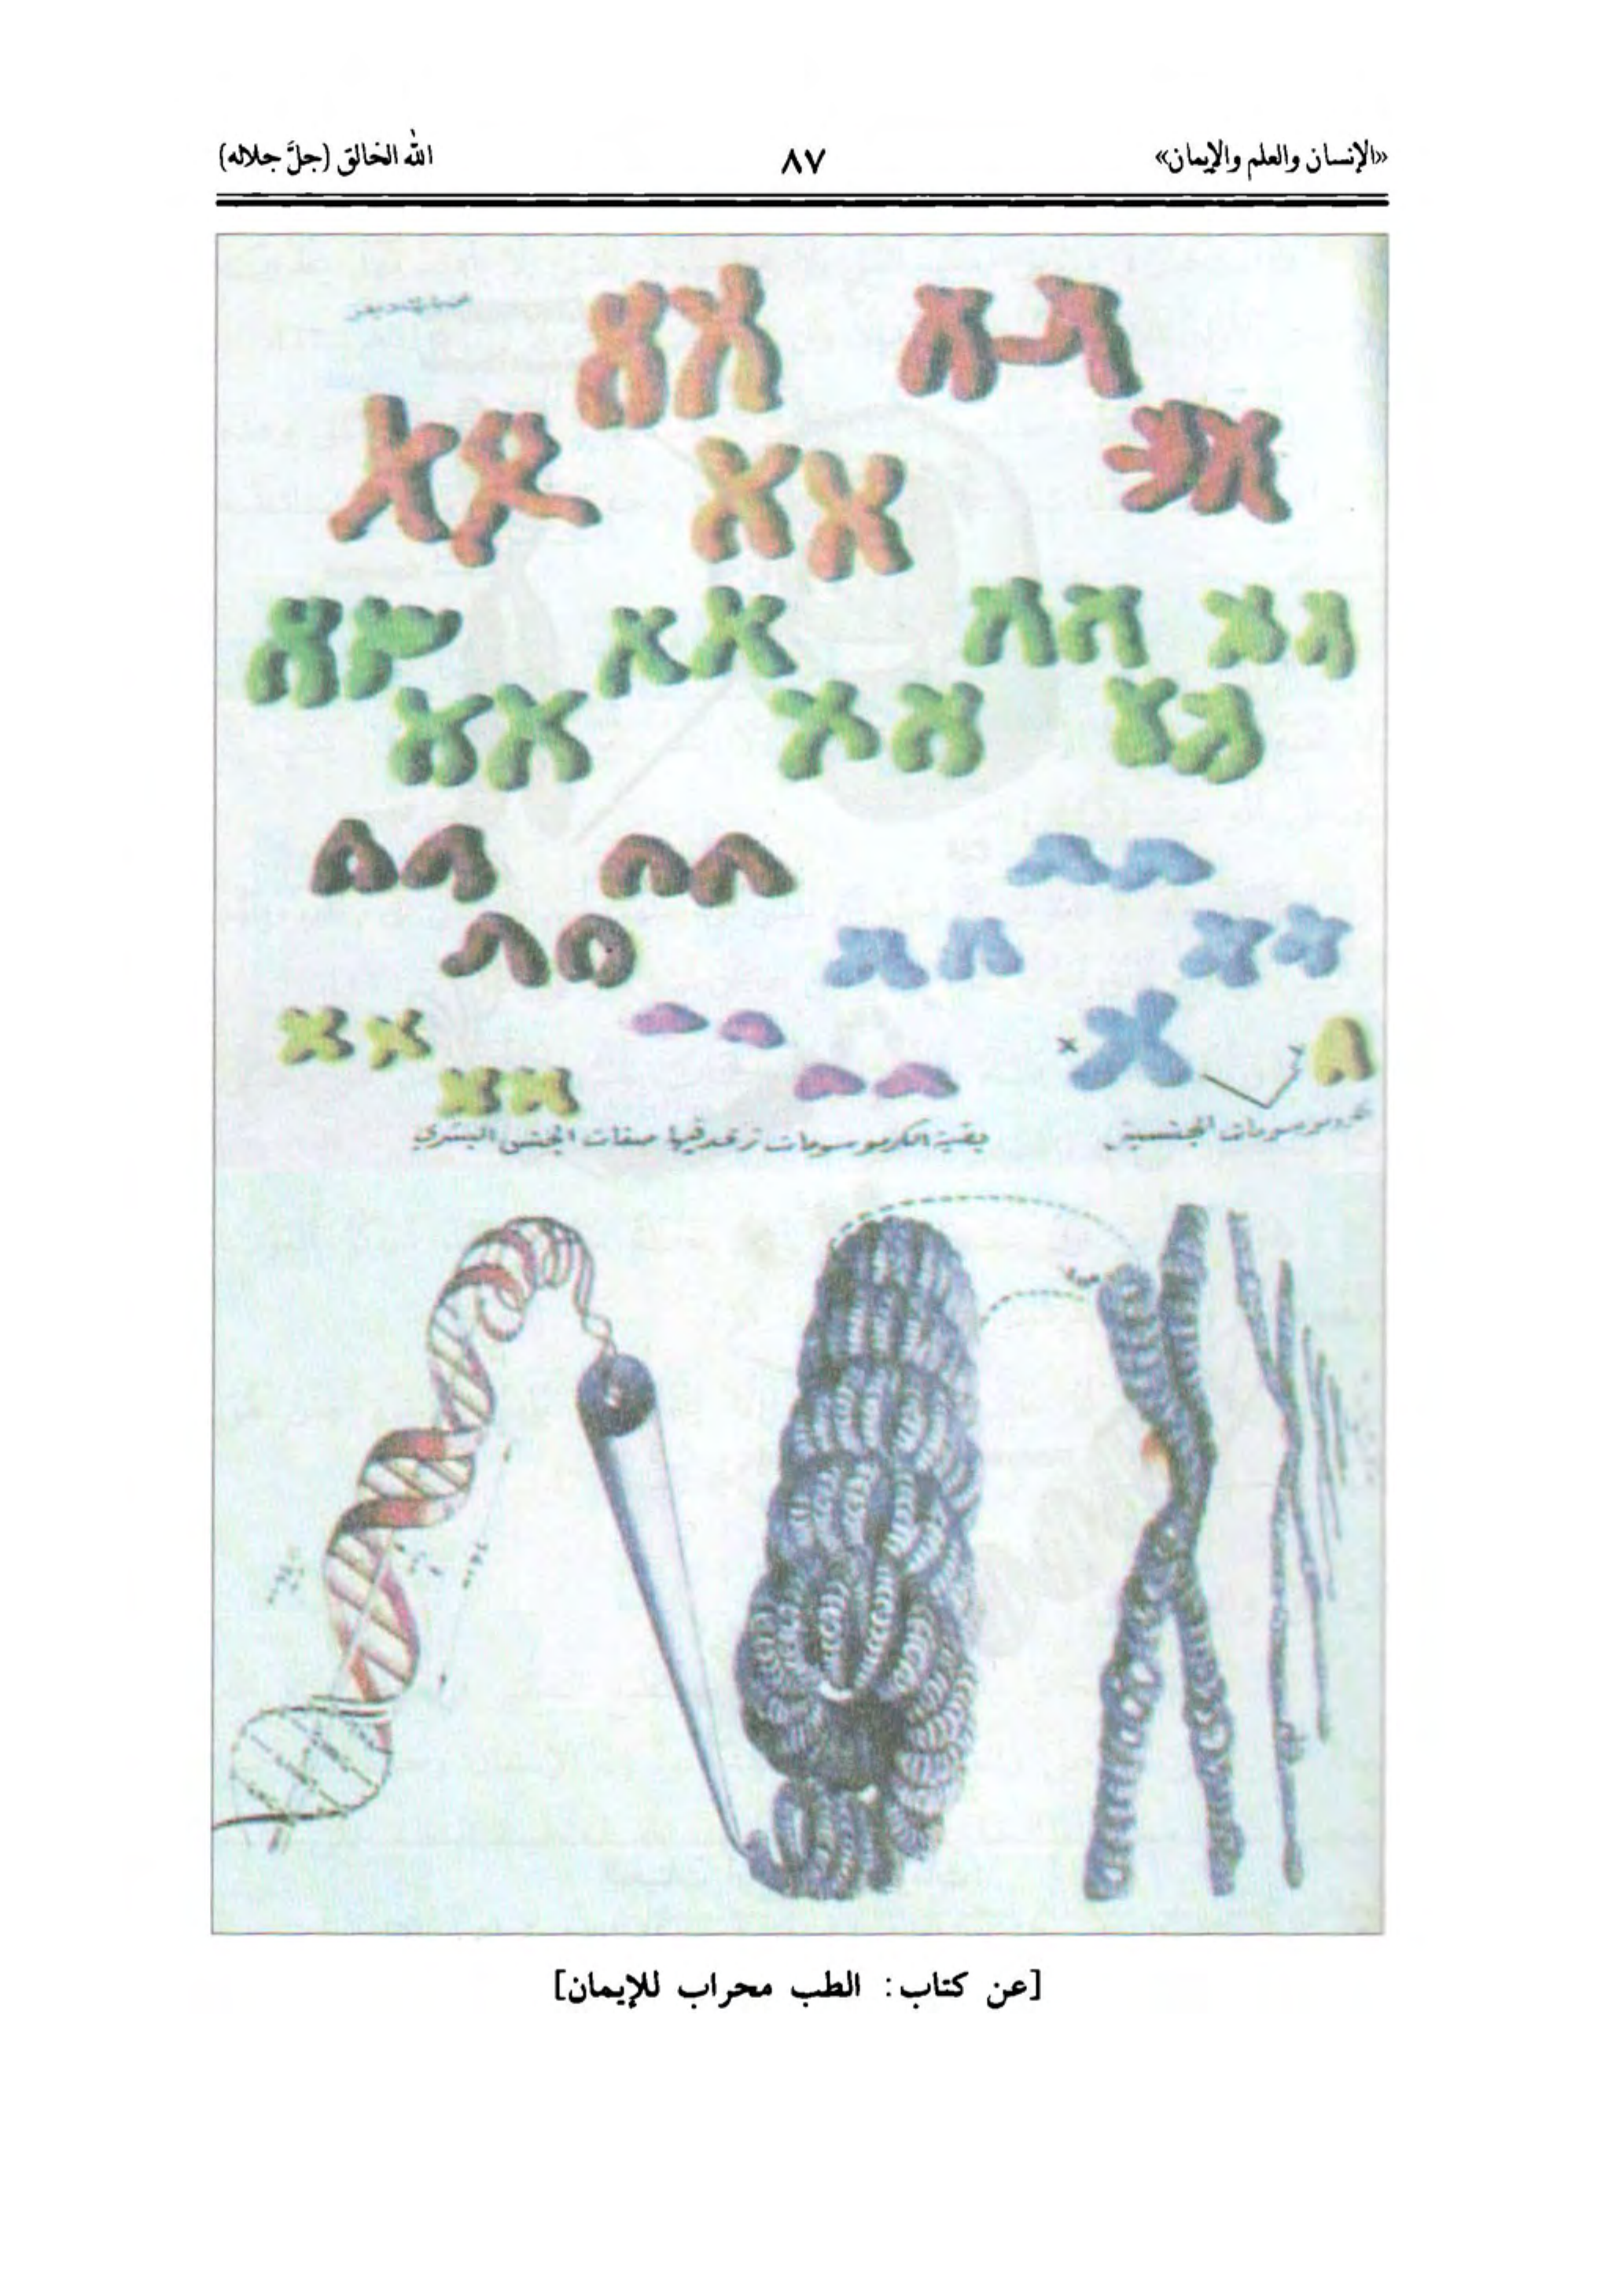 «الإنسان والعلم والإيمان» ٨٧ الله الخالق (جلَّ جلاله)
X
Y
الجنسية
بقية الكرموسومات صفات الجنس البشري
[عن كتاب: الطب محراب للإيمان]